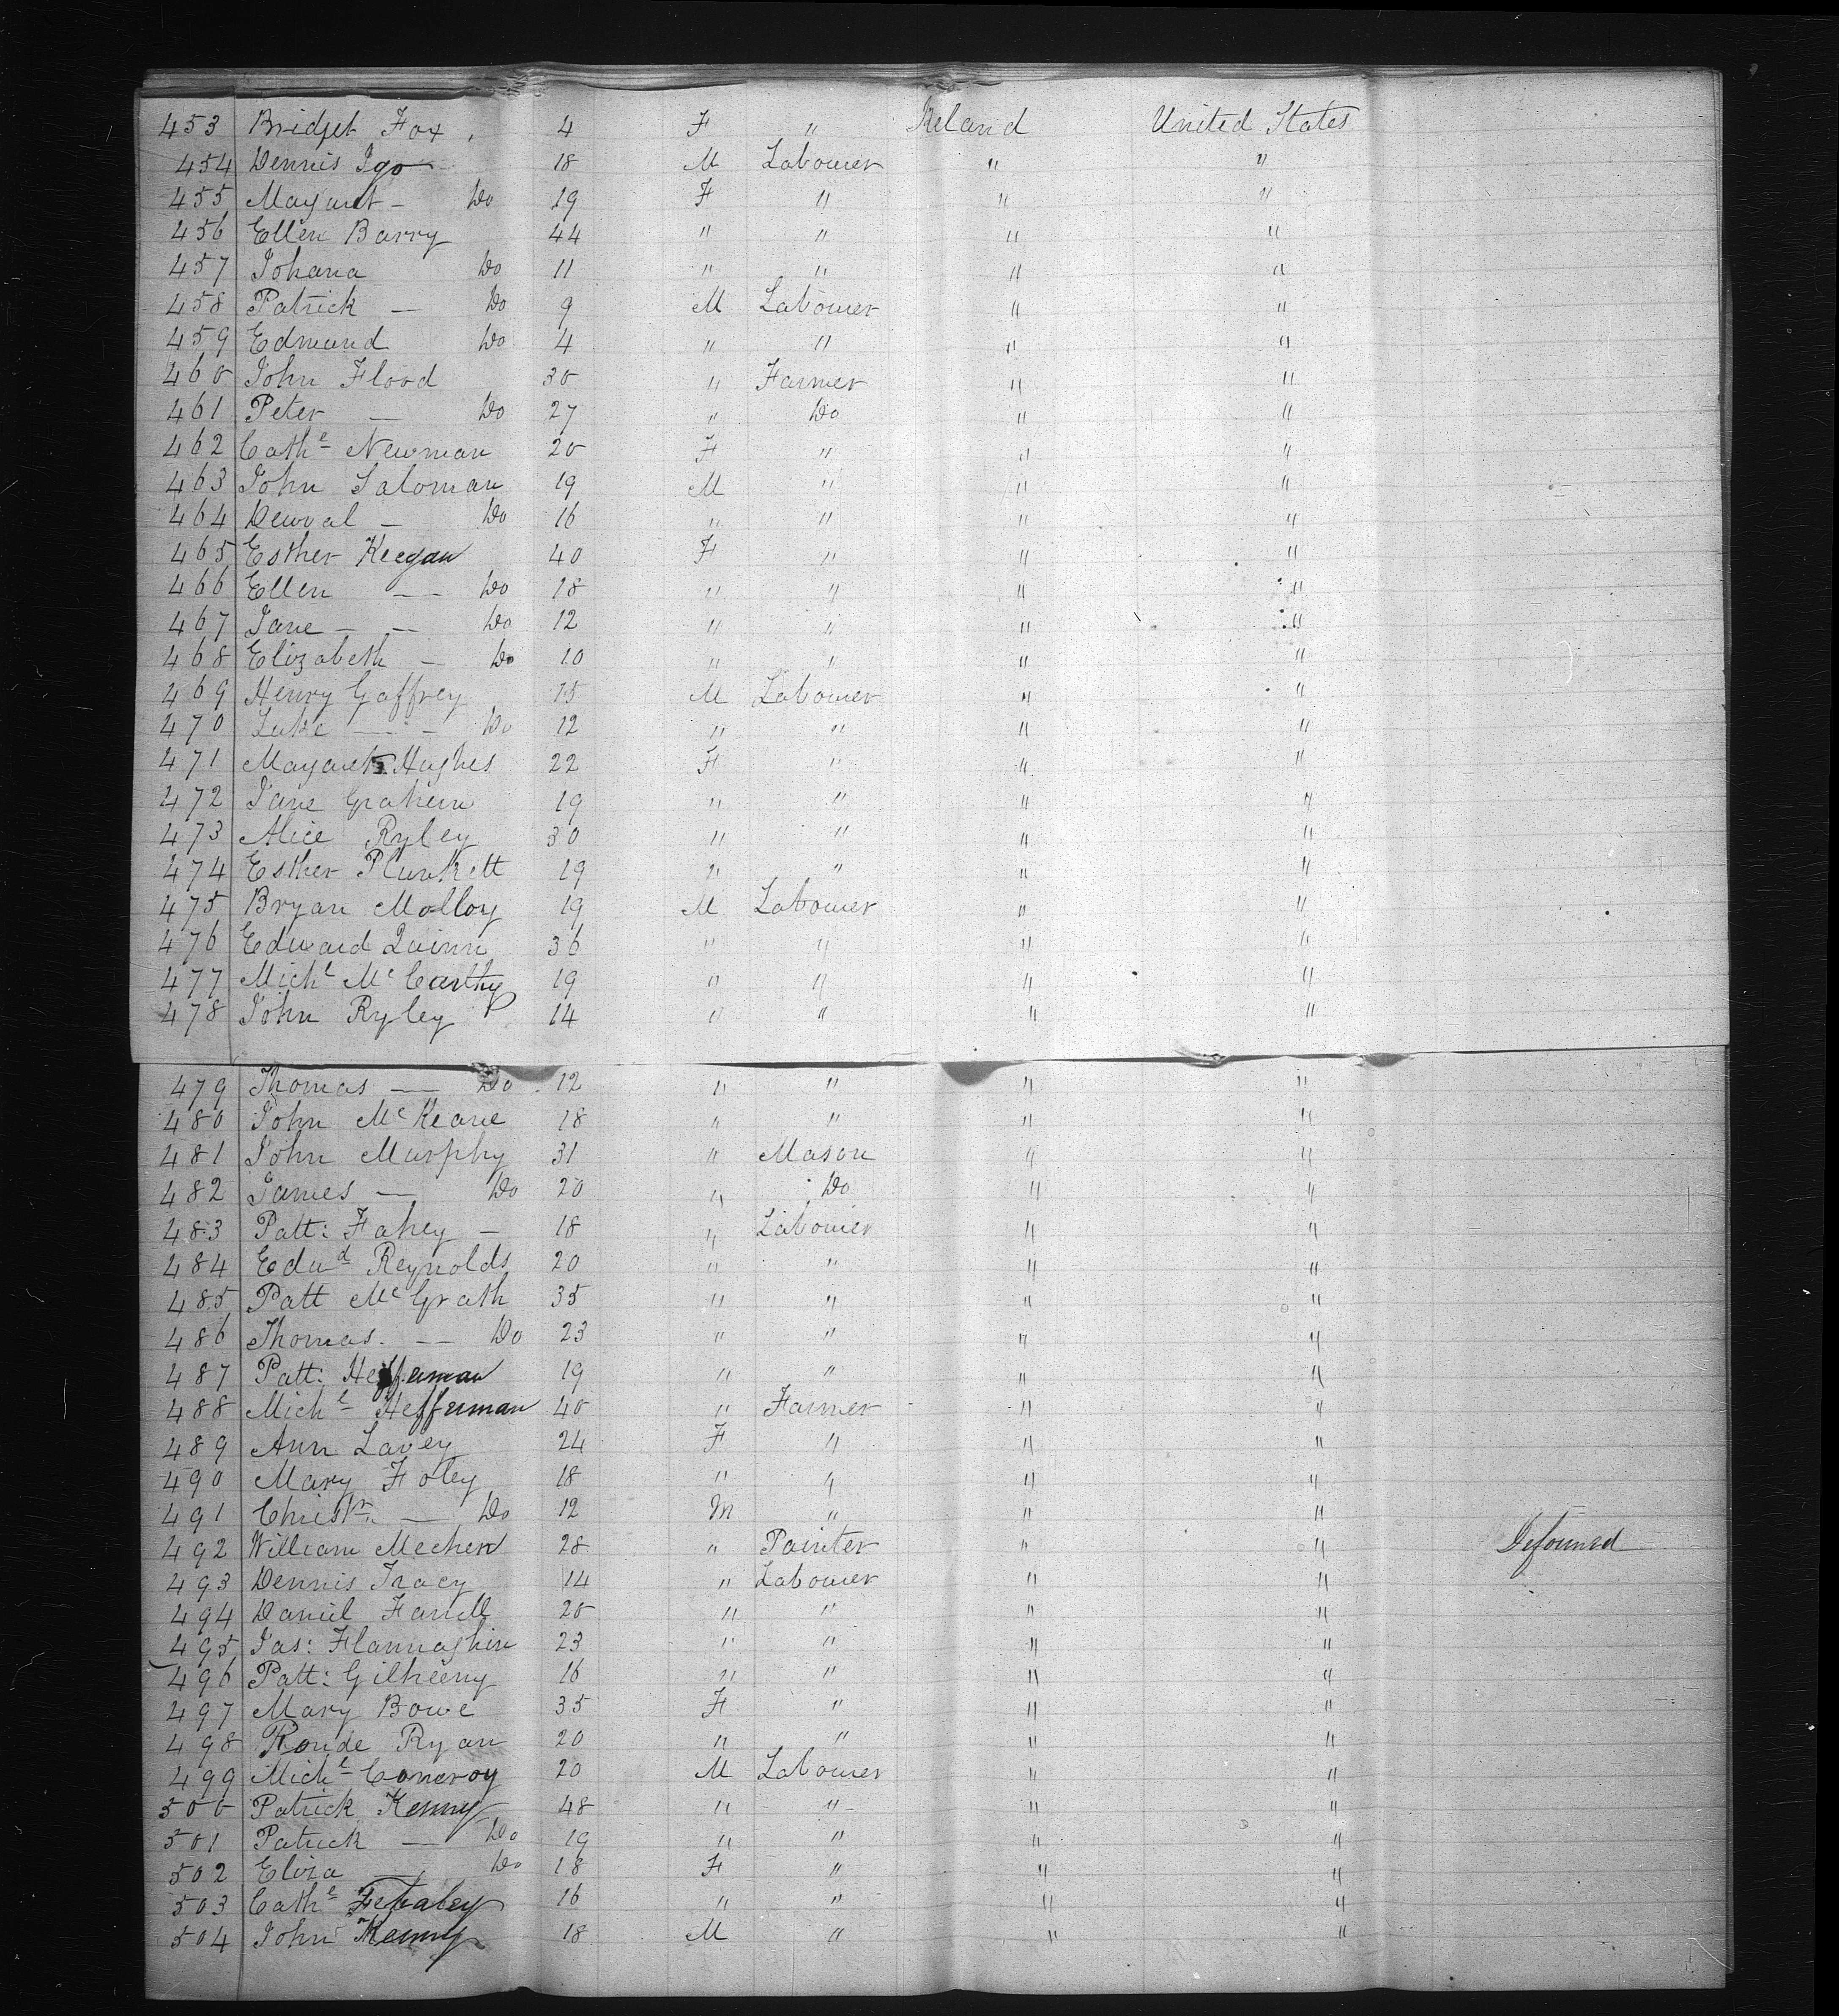 453 Bridget Fox 4 F " Ireland United States
454 Dennis Igo 18 M Labourer " "
455 Magaret - Do 19 F " " "
456 Ellen Barry 44 " " " "
457 Johana Do 11 " " " "
458 Patrick - Do 9 M Labourer " "
459 Edmund Do 4 " " " "
460 John Flood 30 " Farmer " "
461 Peter - Do 27 " Do " "
462 Cathe Newman 20 F " " "
463 John Saloman 19 M " " "
464 - Do 16 " " " "
465 Esther Keegan 40 F " " "
466 Ellen - - Do 18 " " " "
467 Jane - - Do 12 " " " "
468 Elizabeth - Do 10 " " " "
469 Henry Gaffrey 15 M Labourer " "
470 Luke - - Do 12 " " " "
471 Magaret Hughes 22 F " " "
472 Jane Grahem 19 " " " "
473 Alice Ryley 30 " " " "
474 Esther Plunkett 19 " " " "
475 Bryan Molloy 19 M Labourer " "
476 Edward Quinn 36 " " " "
477 Michl McCarthy 19 " " " "
478 John Ryley 14 " " " "
479 Thomas - Do 12 " " " "
480 John McKeane 18 " " " "
481 John Murphy 31 " Mason " "
482 James - Do 20 " Do " "
483 Patt: Fahey - 18 " Labourer " "
484 Edwd Reynolds 20 " " " "
485 Patt McGrath 35 " " " "
486 Thomas - Do 23 " " " "
487 Patt: Heffernan 19 " " " "
488 Michl Heffernan 40 " Farmer " "
489 Ann Lavey 24 F " " "
490 Mary Foley 18 " " " "
491 Christr - Do 12 M " " "
492 William Mecher 28 " Painter " " Deformed
493 Dennis Tracy 14 " Labourer " "
494 Daniel Farrell 20 " " " "
495 Jas: Flannaghin 23 " " " "
496 Patt: Gilheeny 16 " " " "
497 Mary Bowe 35 F " " "
498 Ryan 20 " " " "
499 Michl Coneroy 20 M Labourer " "
500 Patrick Kenny 48 " " " "
501 Patrick - Do 19 " " " "
502 Eliza - Do 18 F " " "
503 Cathe 16 " " " "
504 John Kenny 18 M " " "